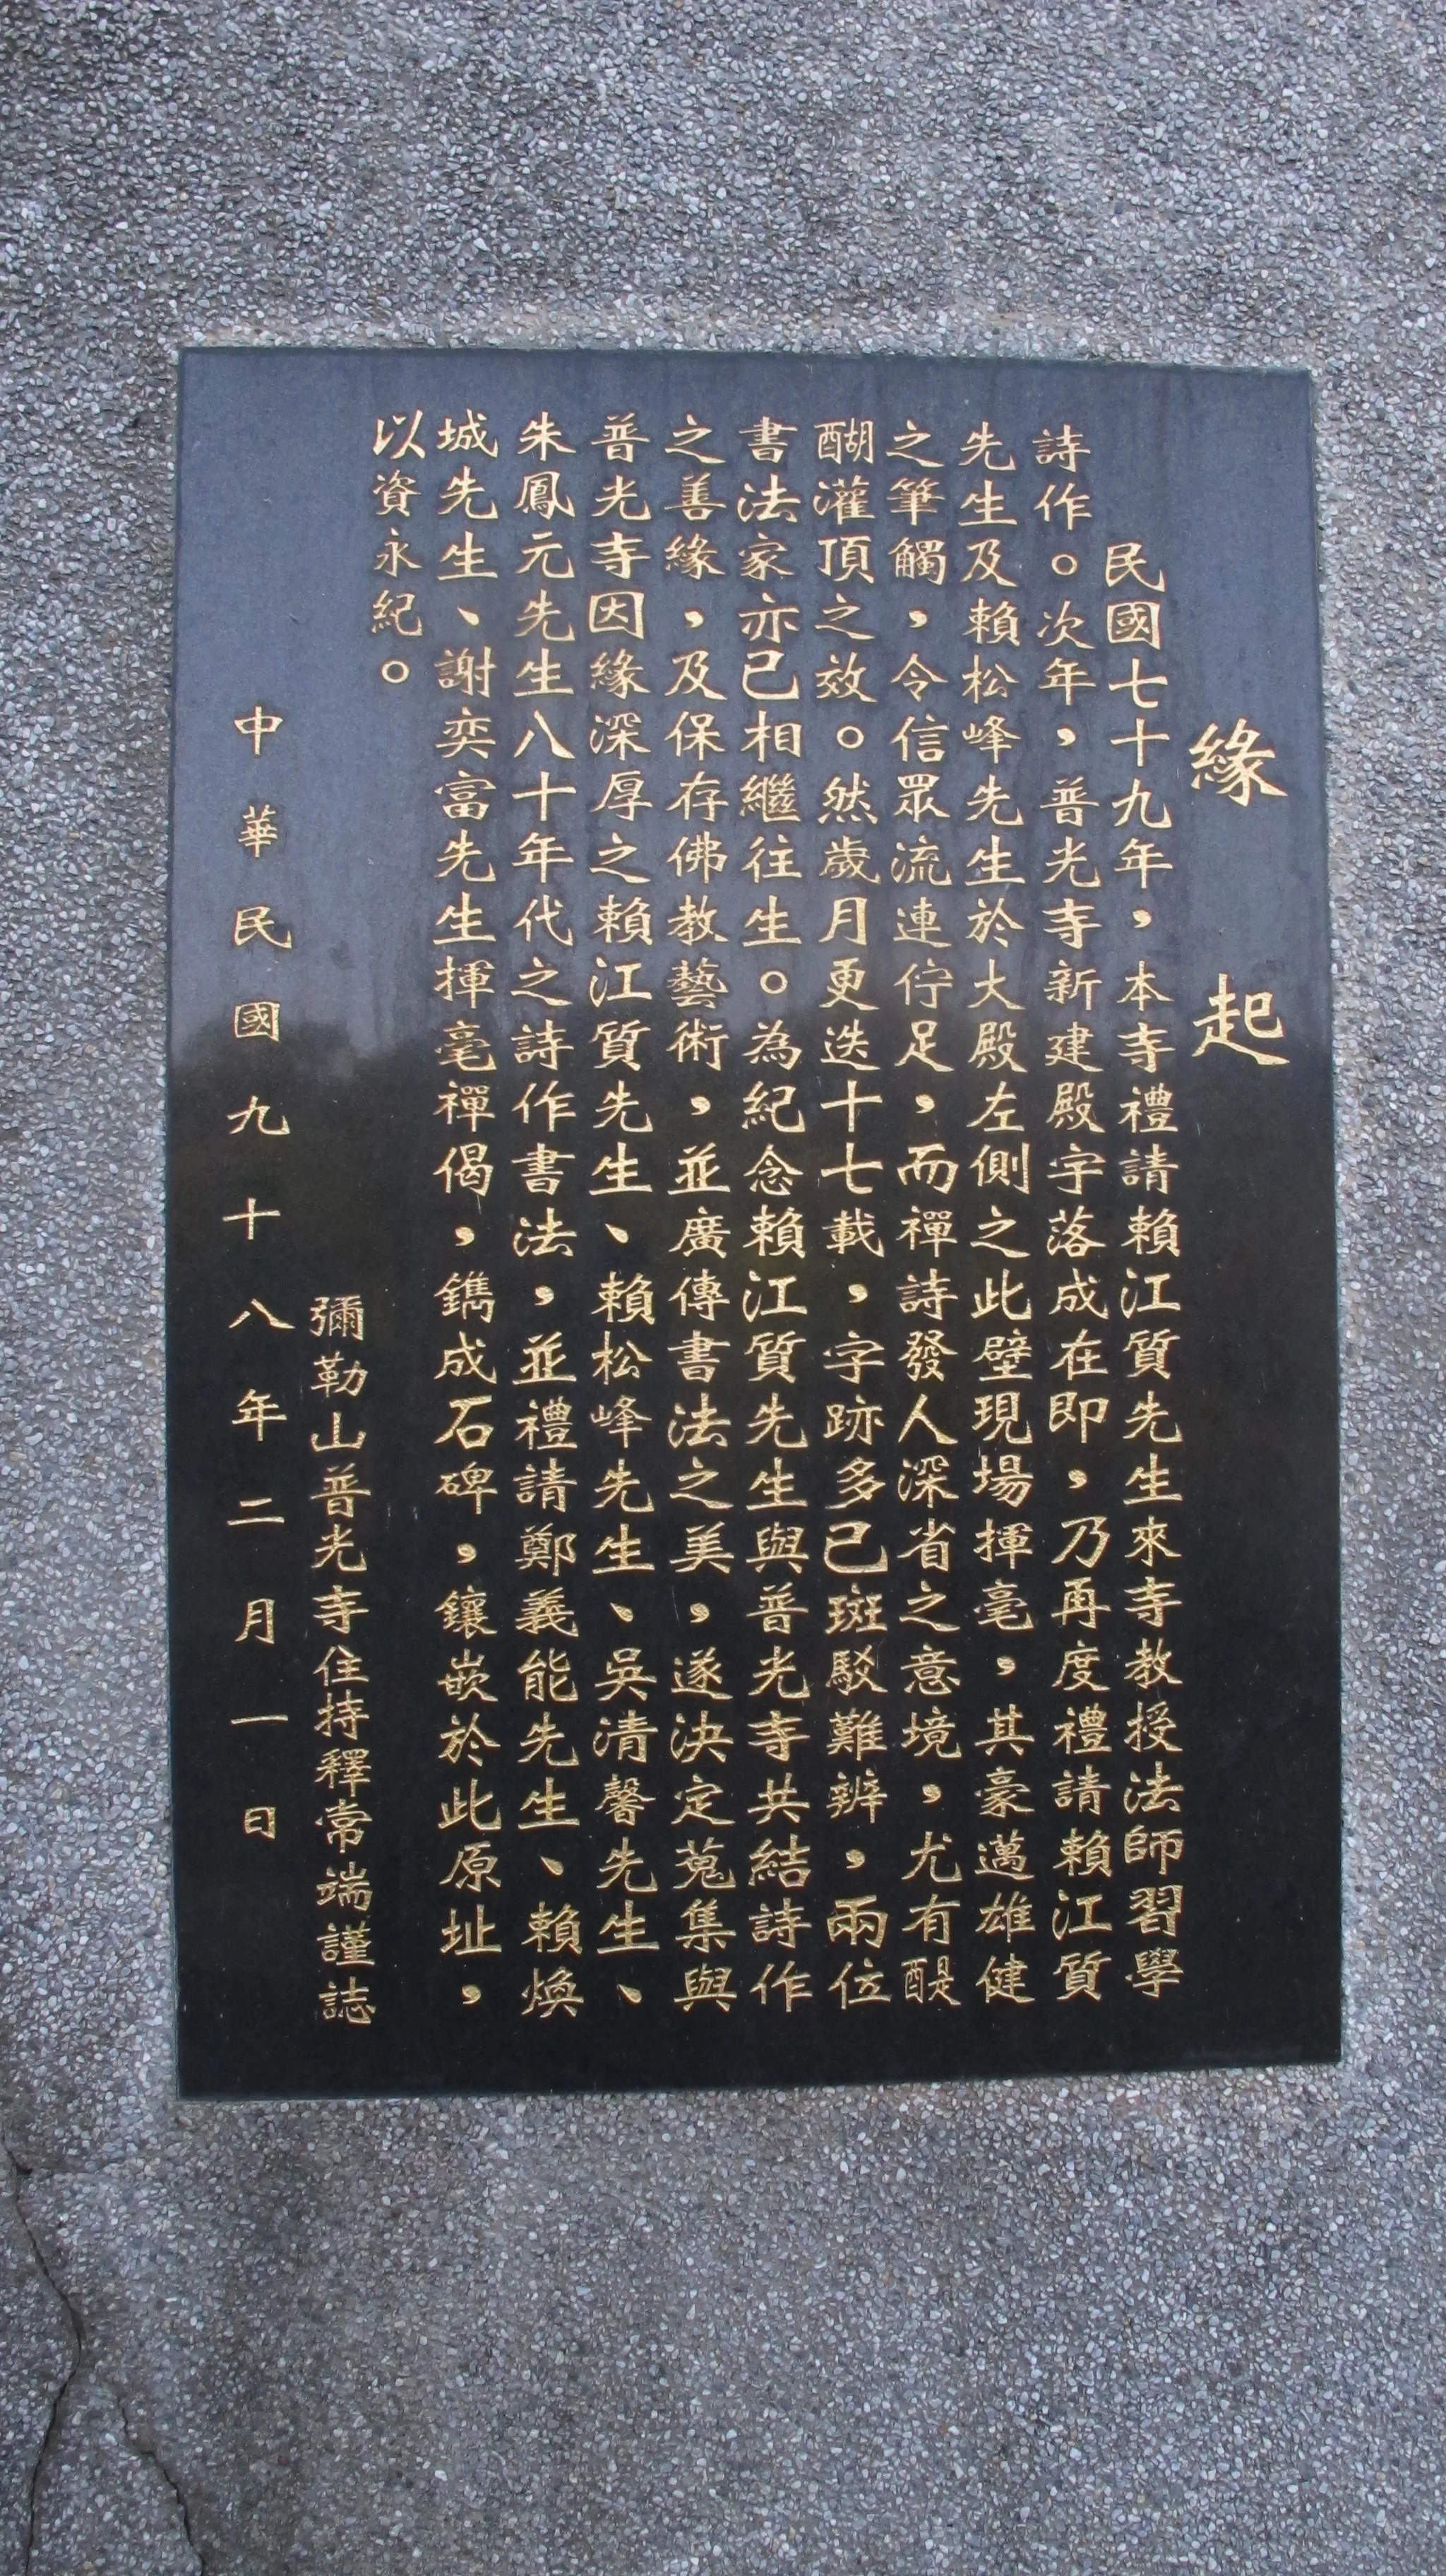 緣起
民國七十九年，本寺禮請賴江質先生來寺教授法師習學
詩作。次年，普光寺新建殿宇落成在即，乃再度禮請賴江質
先生及賴松峰先生於大殿左側之此壁現場揮毫，其豪邁雄健
之筆觸，令信眾流連佇足，而禪詩發人深省之意境，尤有醍
醐灌頂之效。然歲月更迭十七載，字跡多已斑駁難辨，兩位
書法家亦已相繼往生。為紀念賴江質先生與普光寺共結詩作
之善緣，及保存佛教藝術，並廣傳書法之美，遂決定蒐集與
普光寺因緣深厚之賴江質先生、賴松峰先生、吳清馨先生、
朱鳳元先生八十年代之詩作書法，並禮請鄭義能先生、賴煥
城先生、謝奕富先生揮毫禪偈，鐫成石碑，鑲嵌於此原址，
以資永紀。
彌勒山普光寺住持釋常端謹誌
中華民國九十八年二月一日